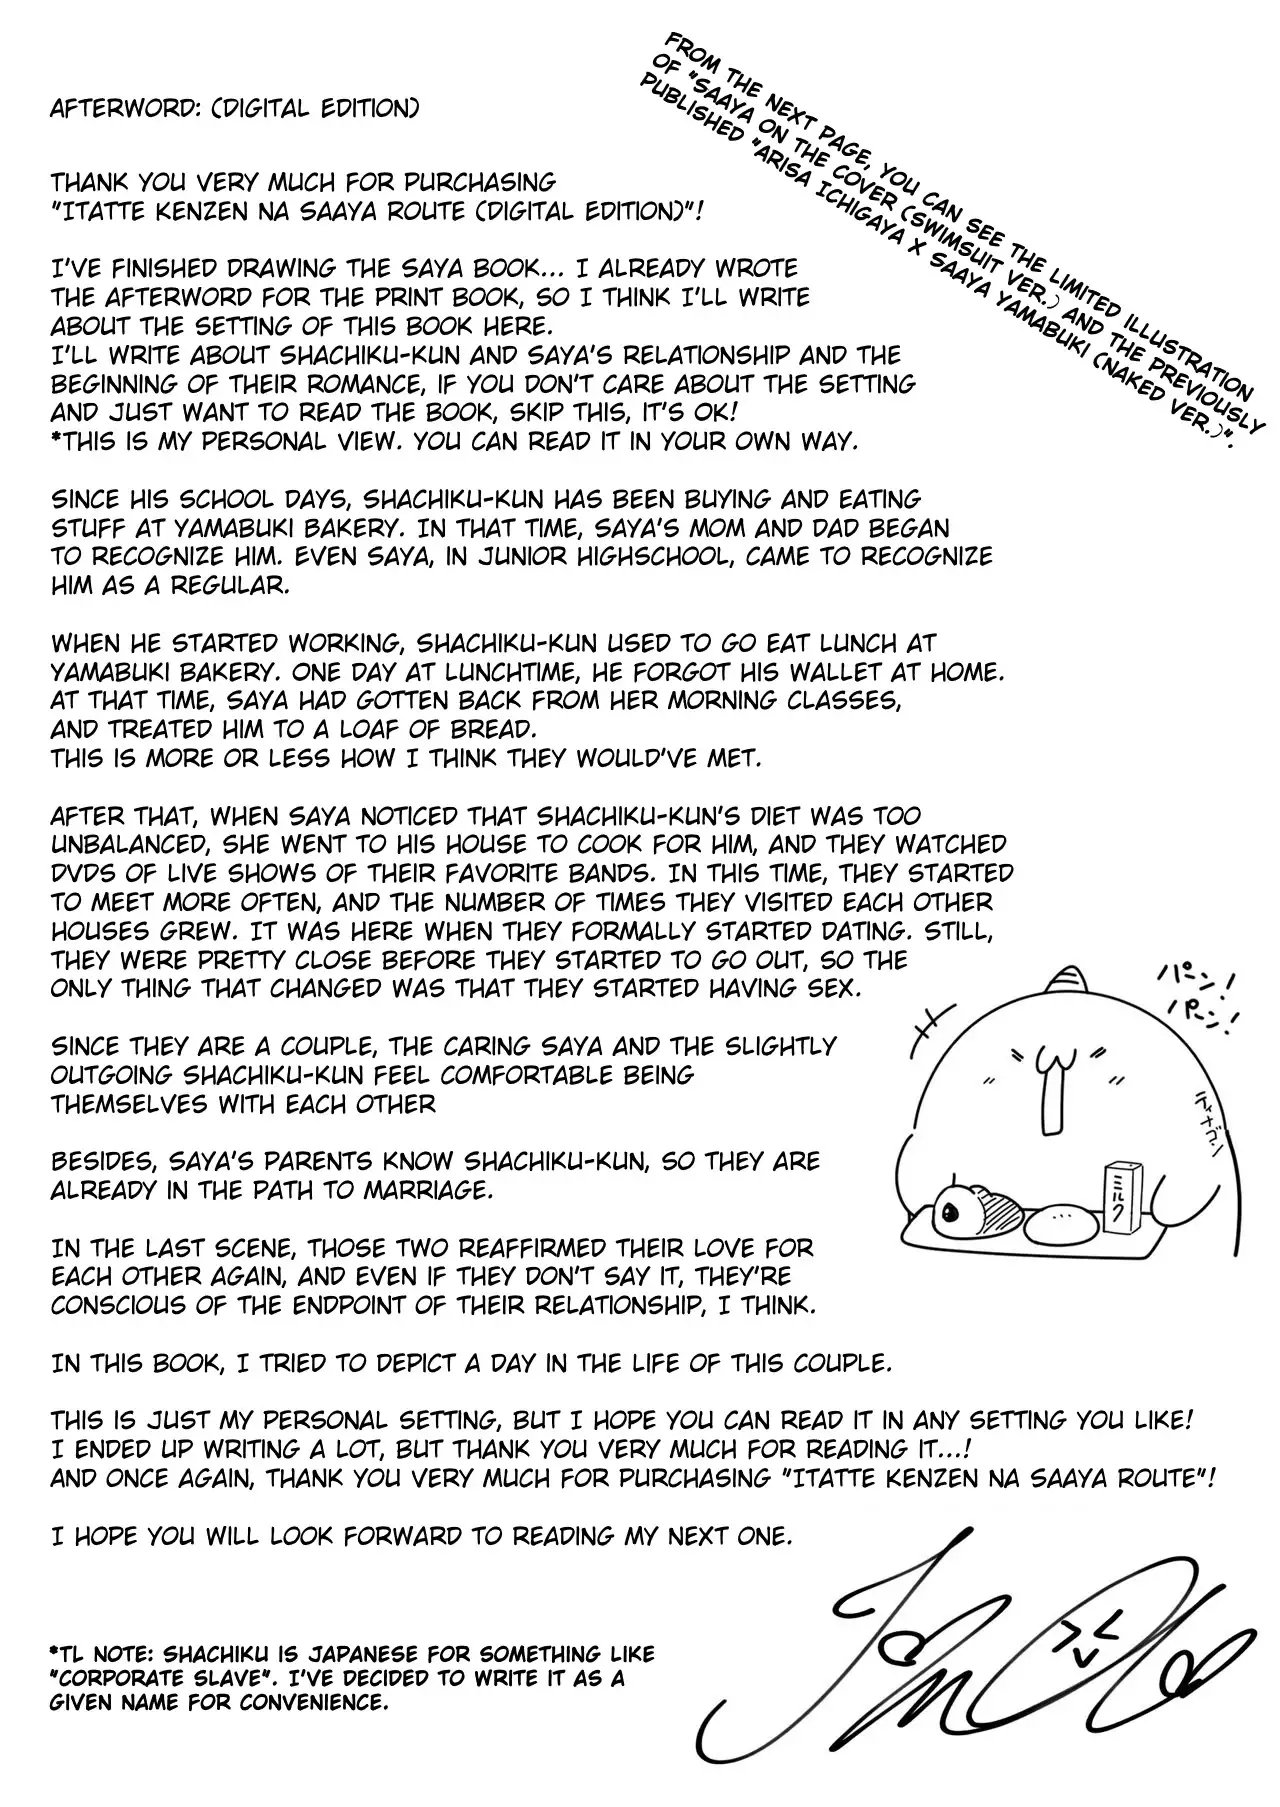 FROM THE NEXT PAGE, YOU CAN SEE THE LIMITED ILLUSTRATION
OF "SAAYA ON THE COVER (SWIMSUIT VER.) AND THE PREVIOUSLY
PUBLISHED "ARISA ICHIGAYA X SAAYA YAMABUKI (NAKED VER.)".
AFTERWORD: (DIGITAL EDITION)
THANK YOU VERY MUCH FOR PURCHASING
"ITATTE KENZEN NA SAAYA ROUTE (DIGITAL EDITION)"!
I'VE FINISHED DRAWING THE SAYA BOOK... I ALREADY WROTE
THE AFTERWORD FOR THE PRINT BOOK, SO I THINK I'LL WRITE
ABOUT THE SETTING OF THIS BOOK HERE.
I'LL WRITE ABOUT SHACHIKU-KUN AND SAYA'S RELATIONSHIP AND THE
BEGINNING OF THEIR ROMANCE, IF YOU DON'T CARE ABOUT THE SETTING
AND JUST WANT TO READ THE BOOK, SKIP THIS, IT'S OK!
*THIS IS MY PERSONAL VIEW. YOU CAN READ IT IN YOUR OWN WAY.
SINCE HIS SCHOOL DAYS, SHACHIKU-KUN HAS BEEN BUYING AND EATING
STUFF AT YAMABUKI BAKERY. IN THAT TIME, SAYA'S MOM AND DAD BEGAN
TO RECOGNIZE HIM. EVEN SAYA, IN JUNIOR HIGHSCHOOL, CAME TO RECOGNIZE
HIM AS A REGULAR.
WHEN HE STARTED WORKING, SHACHIKU-KUN USED TO GO EAT LUNCH AT
YAMABUKI BAKERY. ONE DAY AT LUNCHTIME, HE FORGOT HIS WALLET AT HOME.
AT THAT TIME, SAYA HAD GOTTEN BACK FROM HER MORNING CLASSES,
AND TREATED HIM TO A LOAF OF BREAD.
THIS IS MORE OR LESS HOW I THINK THEY WOULD'VE MET.
AFTER THAT, WHEN SAYA NOTICED THAT SHACHIKU-KUN'S DIET WAS TOO
UNBALANCED, SHE WENT TO HIS HOUSE TO COOK FOR HIM, AND THEY WATCHED
DVDS OF LIVE SHOWS OF THEIR FAVORITE BANDS. IN THIS TIME, THEY STARTED
TO MEET MORE OFTEN, AND THE NUMBER OF TIMES THEY VISITED EACH OTHER
HOUSES GREW. IT WAS HERE WHEN THEY FORMALLY STARTED DATING. STILL,
THEY WERE PRETTY CLOSE BEFORE THEY STARTED TO GO OUT, SO THE
ONLY THING THAT CHANGED WAS THAT THEY STARTED HAVING SEX.
SINCE THEY ARE A COUPLE, THE CARING SAYA AND THE SLIGHTLY
OUTGOING SHACHIKU-KUN FEEL COMFORTABLE BEING
THEMSELVES WITH EACH OTHER
BESIDES, SAYA'S PARENTS KNOW SHACHIKU-KUN, SO THEY ARE
ALREADY IN THE PATH TO MARRIAGE.
IN THE LAST SCENE, THOSE TWO REAFFIRMED THEIR LOVE FOR
EACH OTHER AGAIN, AND EVEN IF THEY DON'T SAY IT, THEY'RE
CONSCIOUS OF THE ENDPOINT OF THEIR RELATIONSHIP, I THINK.
IN THIS BOOK, I TRIED TO DEPICT A DAY IN THE LIFE OF THIS COUPLE.
THIS IS JUST MY PERSONAL SETTING, BUT I HOPE YOU CAN READ IT IN ANY SETTING YOU LIKE!
I ENDED UP WRITING A LOT, BUT THANK YOU VERY MUCH FOR READING IT...!
AND ONCE AGAIN, THANK YOU VERY MUCH FOR PURCHASING "ITATTE KENZEN NA SAAYA ROUTE"!
I HOPE YOU WILL LOOK FORWARD TO READING MY NEXT ONE.
パーン!
パーン!
ミルク
*TL NOTE: SHACHIKU IS JAPANESE FOR SOMETHING LIKE
"CORPORATE SLAVE". I'VE DECIDED TO WRITE IT AS A
GIVEN NAME FOR CONVENIENCE.